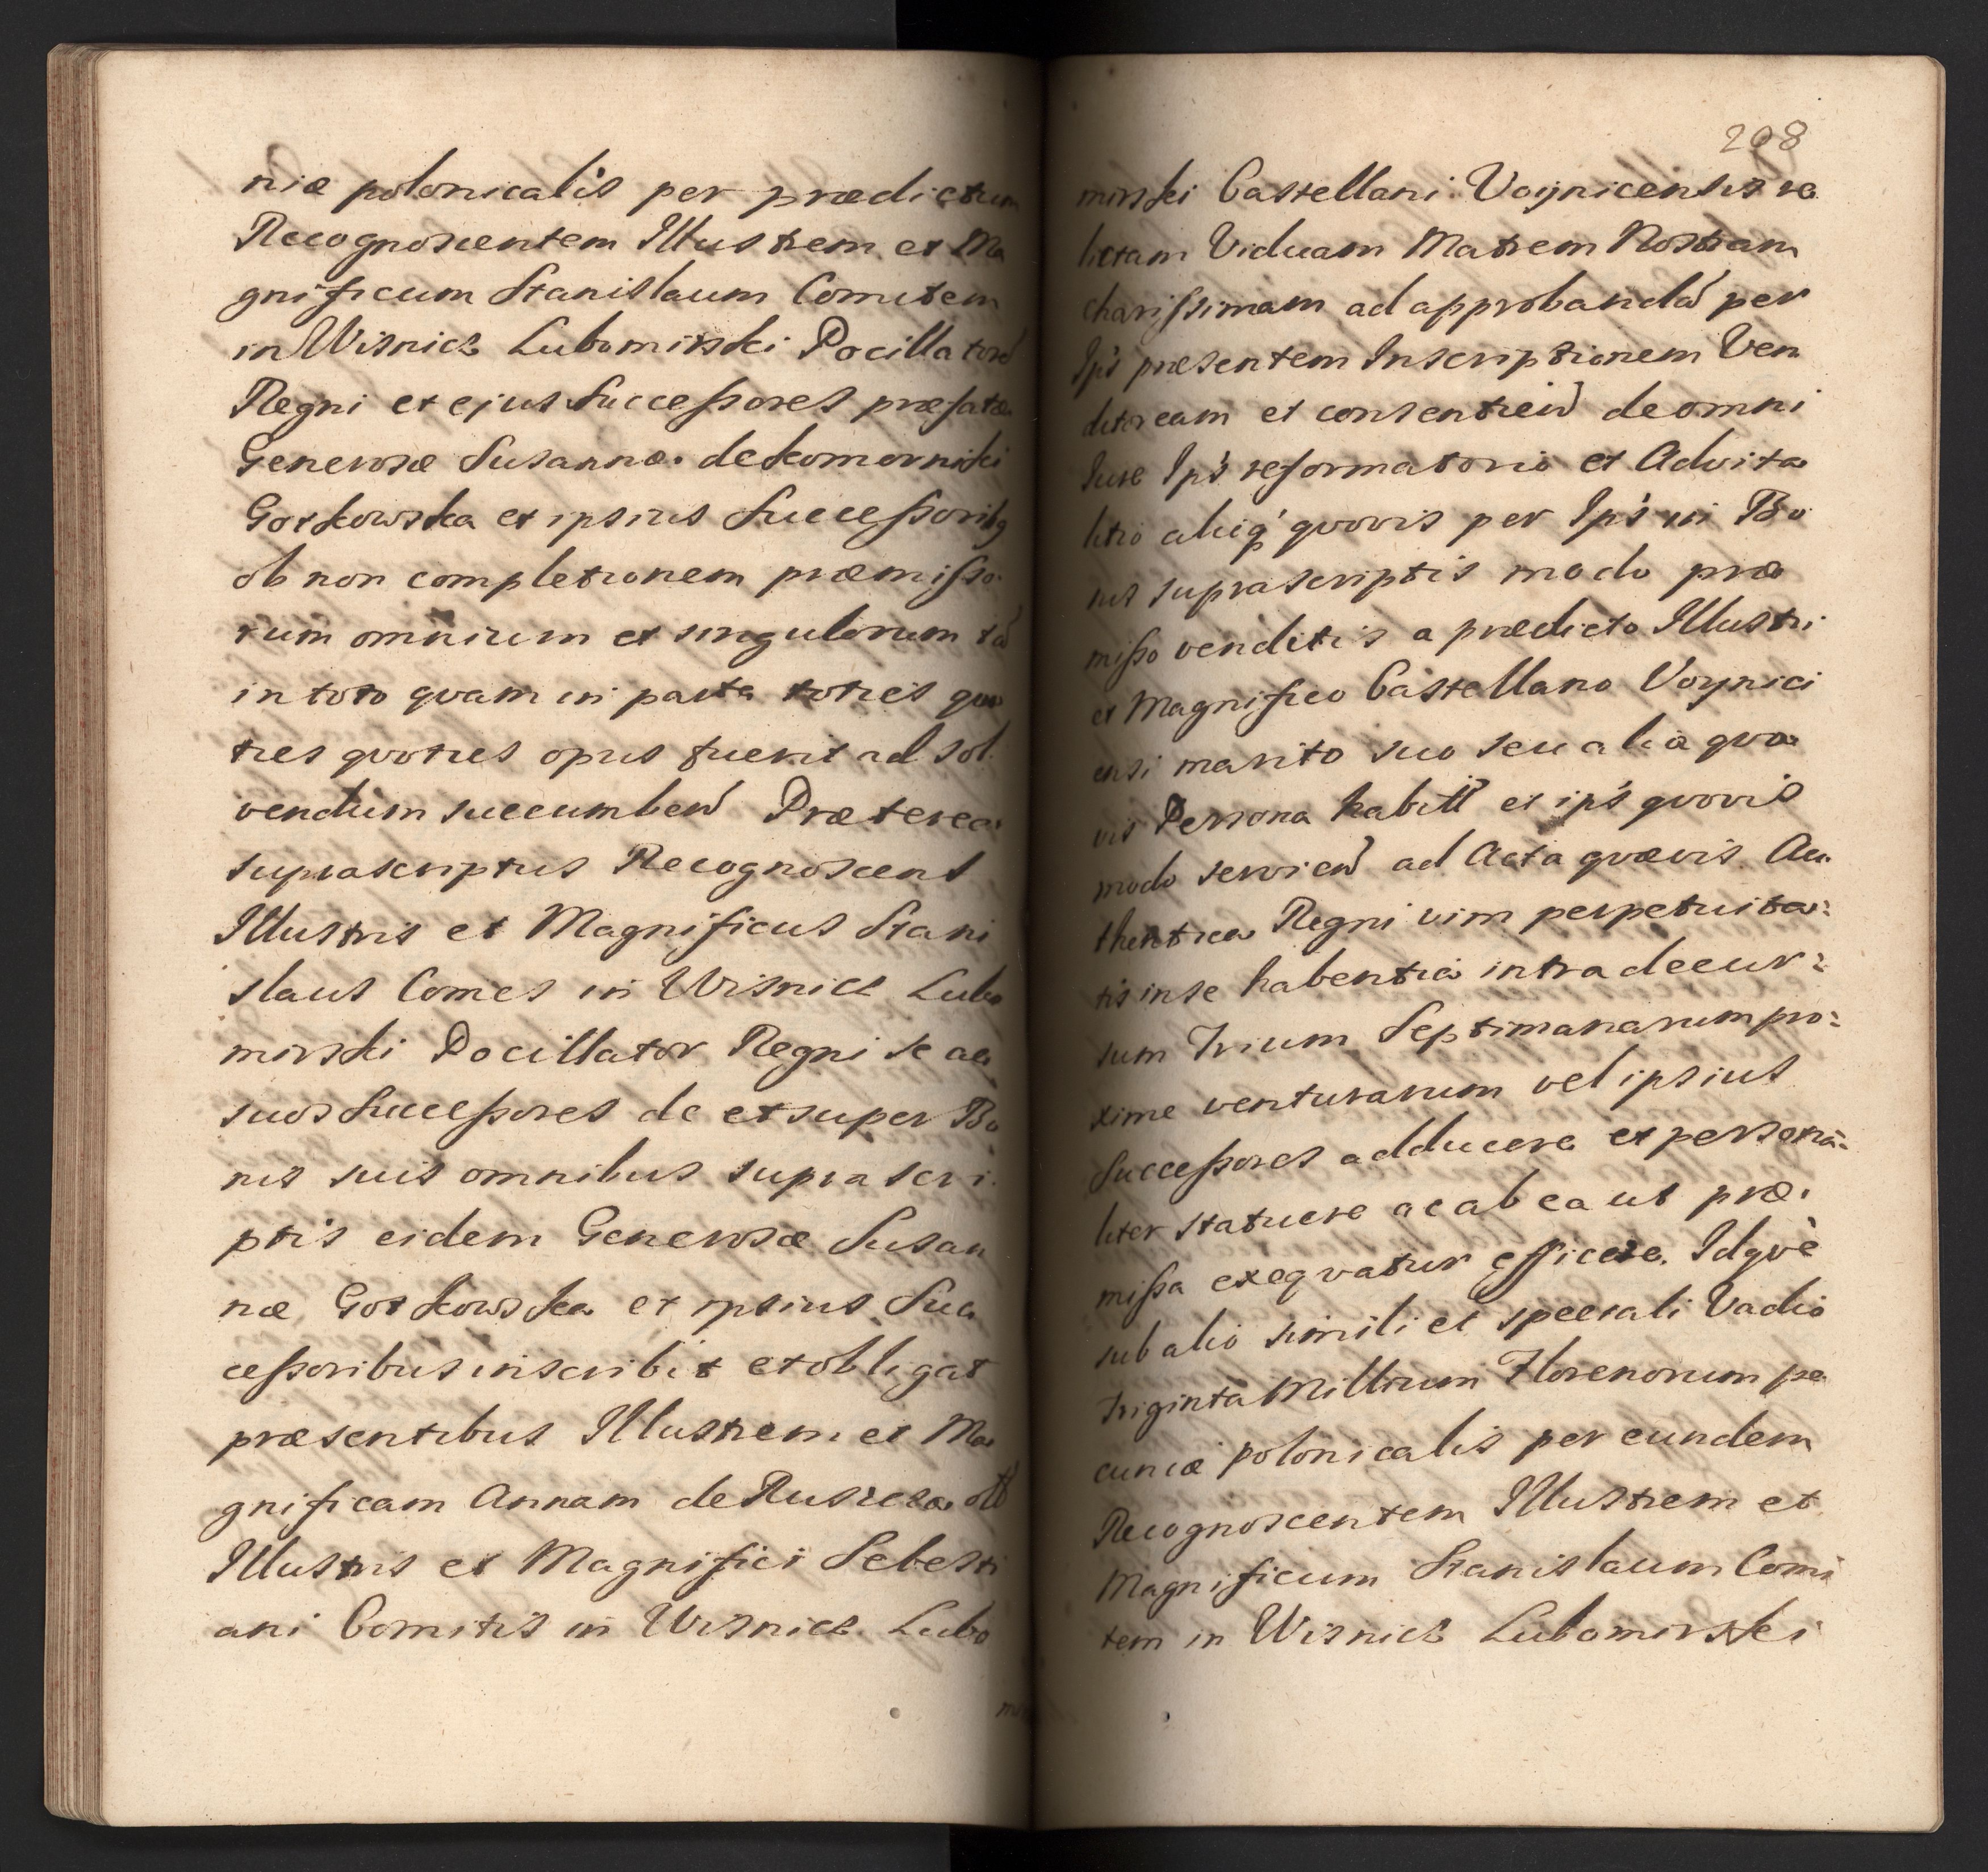 niæ polonicalis per prædictum
Recognoscentem Illustrem et Ma
gnificum Stanislaum Comitem
in Wisnicz Lubomirski Pocillatorē
Regni et ejus Successores præfatæ
Generosæ Susannæ de Komorniki
Gorkowska et ipsius Successoribq
ob non completionem præmisso
rum omnium et singulorum tā
in toto qvam in parte toties qvo
ties qvoties opus fuerit ad sol
vendum succumbeñ Præterea
suprascriptus Recognoscens
Illustris et Magnificus Stani
slaus Comes in Wisnicz Lubo
mirski Pocillator Regni se ac
suos Successores de et super Bo
nis suis omnibus suprascri
ptis eidem Generosæ Susan
næ Gorkowska et ipsius Suc
cessoribus inscribit et obligat
præsentibus Illustrem et Ma
gnificam Annam de Ruszcza olī
Illustris et Magnifici Sebesti
ani Comitis in Wisnicz Lubo
208
mirski Castellani Voynicensis re
lictam Viduam Matrem Nostram
charissimam ad approbandā per
Ips præsentem Inscriptionem Ven
ditoream et consentieñ de omni
Iure Ips reformatorio et Advita
litio aliq̀ qvovis per Ips in Bo
nis suprascriptis modo præ
misso venditis a prædicto Illustri
et Magnifico Castellano Voynici
ensi marito suo seu alia qva
vis Persona habitt et ips qvovis
modo servieñ ad Acta qvævis Au
thentica Regni vim perpetuita:
tis in se habentia intra decur:
sum Trium Septimanarum pro:
xime venturarum vel ipsius
Successores adducere et persona:
liter statuere ac ab ea ut præ
missa exeqvatur efficere. Idqvè
sub alio simili et speciali Vadio
triginta Millium Florenorum pe
cuniæ polonicalis per eundem
Recognoscentem Illustrem et
Magnificum Stanislaum Comi
tem in Wisnicz Lubomirski